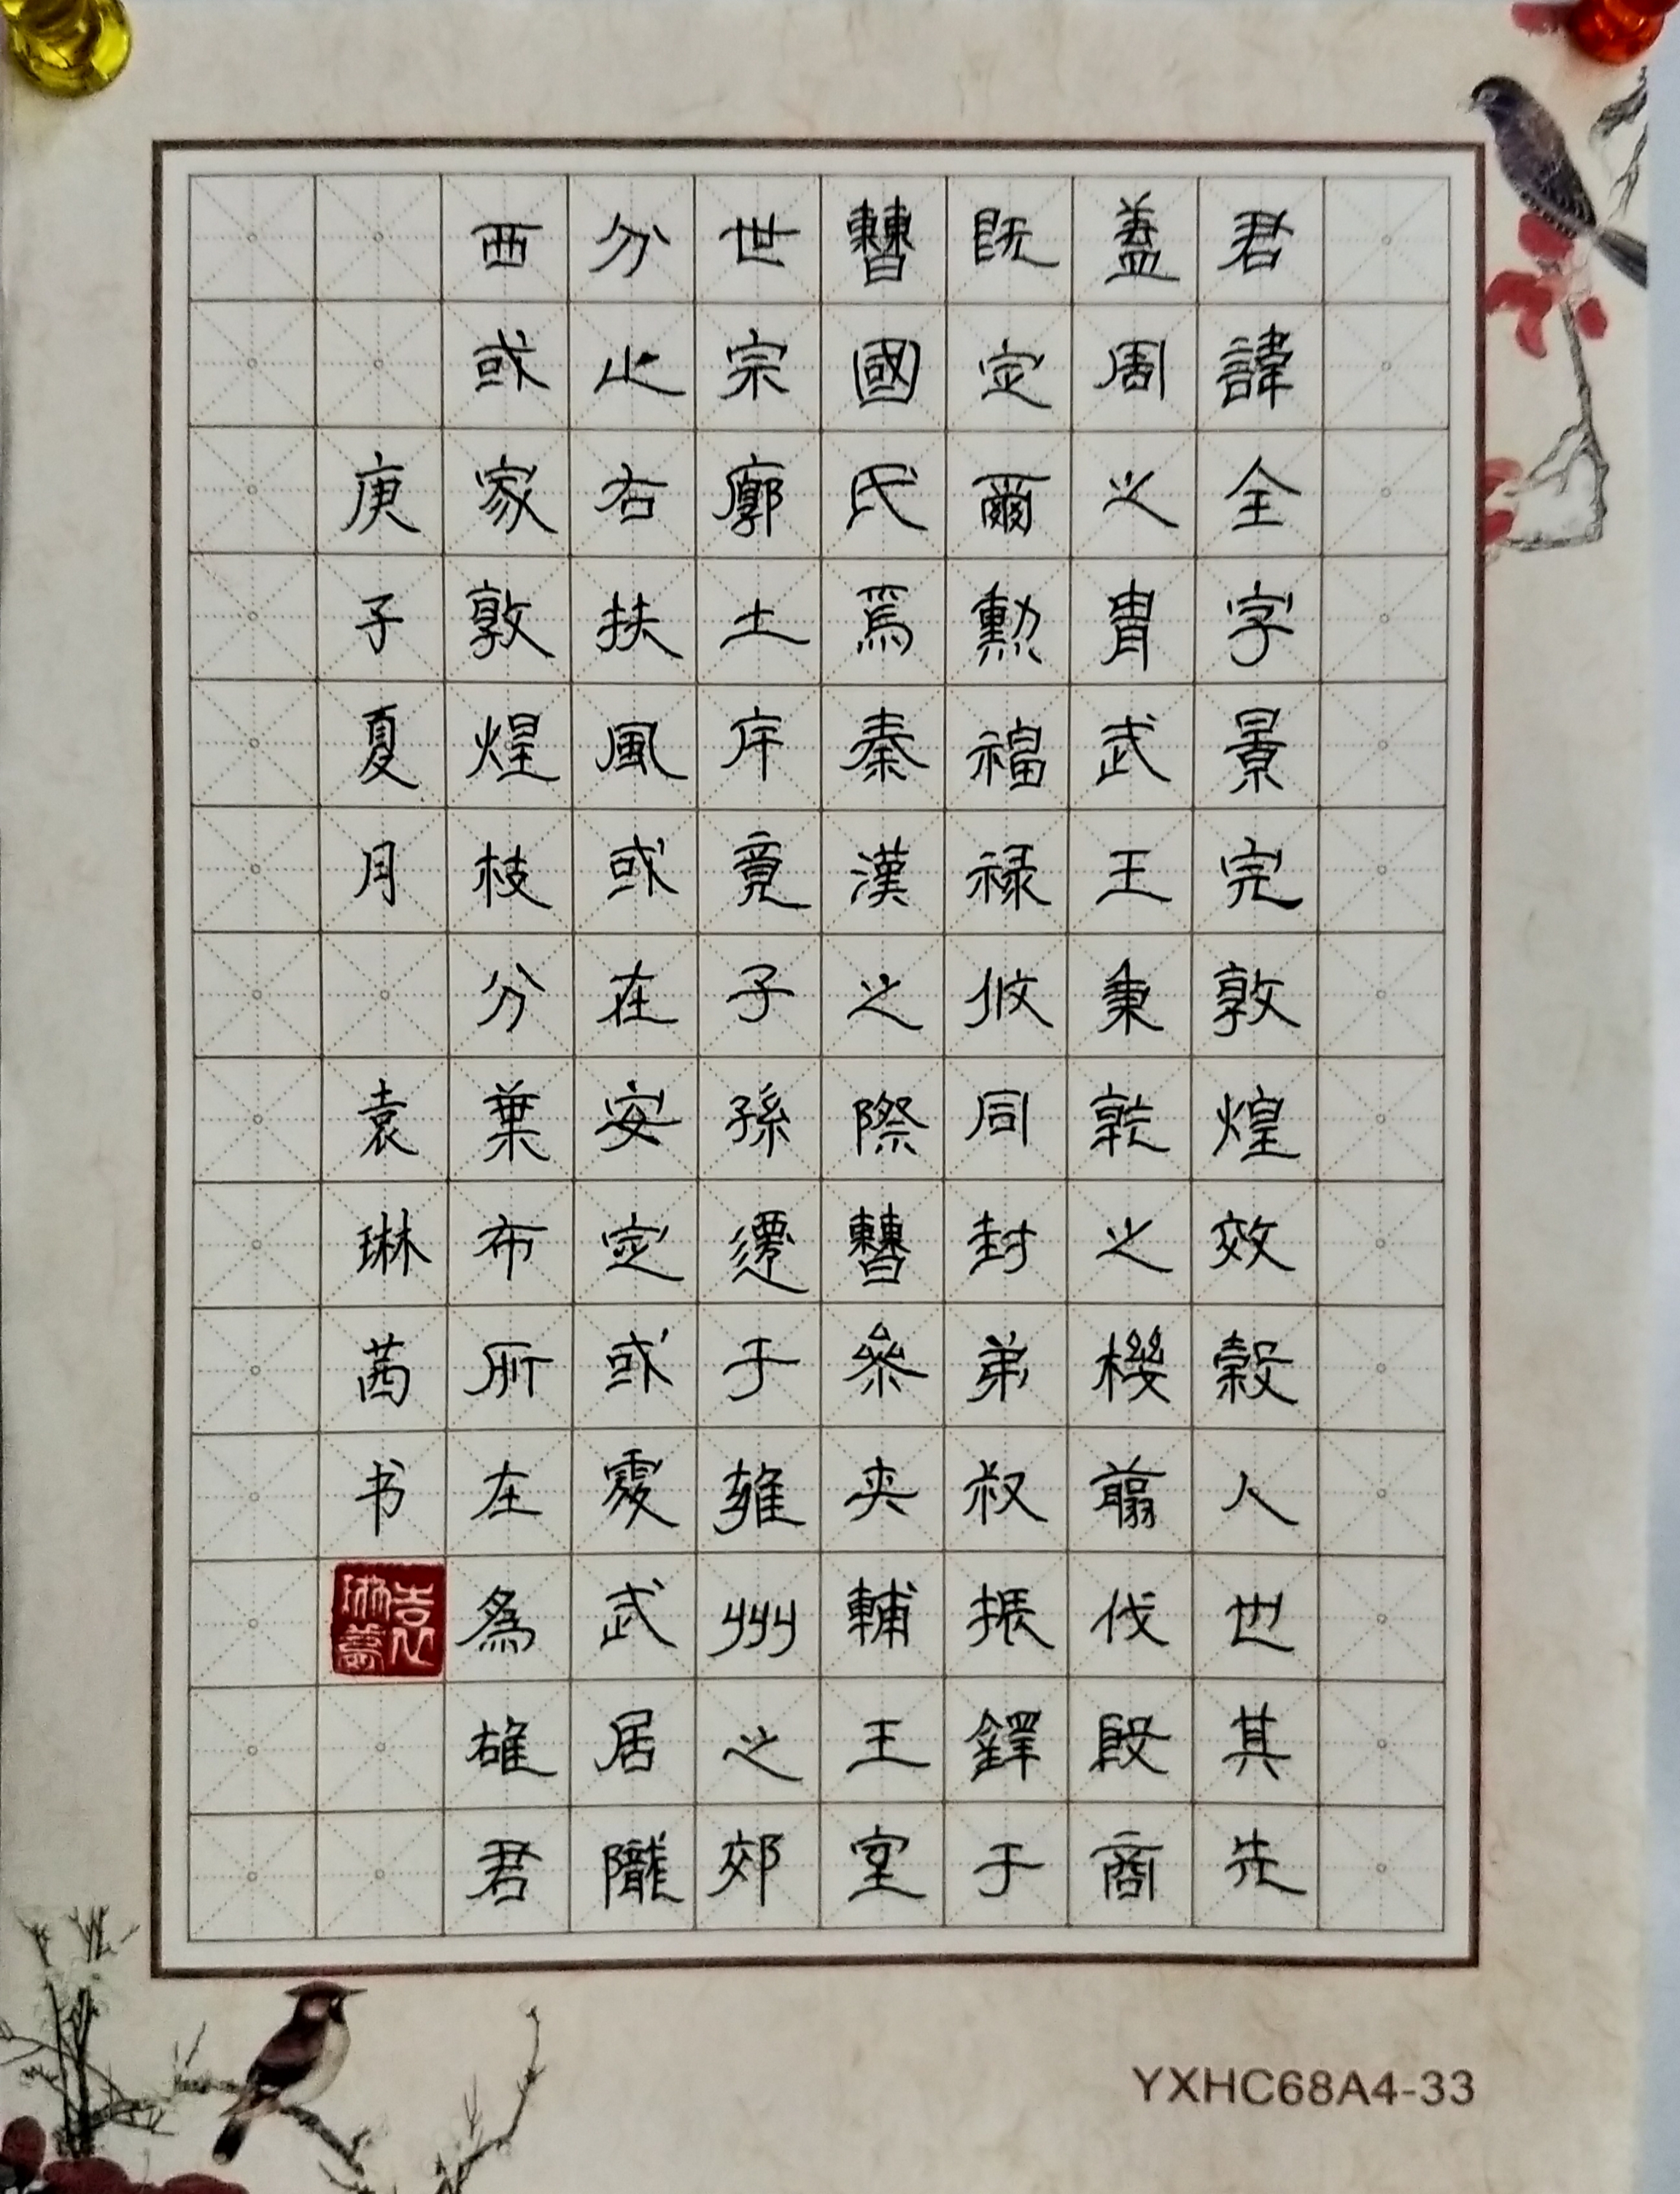 君諱全字景完敦煌效穀人也其先
蓋周之胄武王秉乾之機翦伐殷商
既定爾勳福祿攸同封弟叔振鐸于
曹國氏焉秦漢之際曹參夾輔王室
世宗廓土斥竟子孫遷于雍州之郊
分止右扶風或在安定或處武居隴
西或家敦煌枝分葉布所在為雄君
庚子夏月 袁琳茜书
袁琳茜
YXHC68A4-33